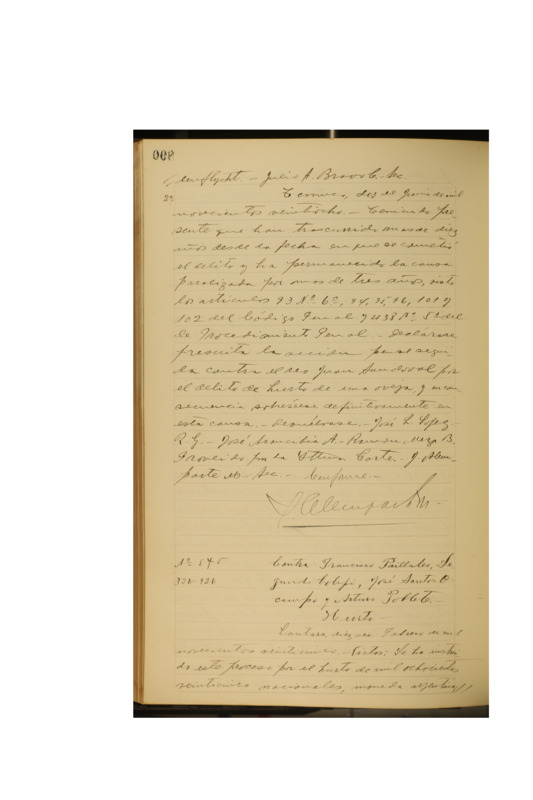 900
Julio A. Bravo G. Sec
2ª Temuco, dos de Junio de mil
novecientos veintiocho. - Teniendo pre-
sente que han trascurrido mas de diez
años desde la fecha en que se cometió
el delito y ha permanecido la causa
paralizada por mas de tres años, visto
los articulos 93 Nº 6º, 94, 95, 96, 101 y
102 del Código Penal y 438 Nº 5º del
de Procedimiento Penal. - Declárase
prescrita la accion penal segui-
da contra el reo Juan Sandoval por
el delito de hurto de una oveja, y en con-
secuencia sobreséese definitivamente en
esta causa. - Devuélvase. - José L. Lopez -
R. G. - José Arancibia A. - Ramon Meza B.
Proveido por la Iltma. Corte. - J. Alem-
parte M. Sec. - Conforme. -
J Alemparte M -
Nº 545 Contra Francisco Paillaleo, Se
gundo Colipi, José Santos O
campo y Arturo Poblete. -
Hurto -
Lautaro, Febrero de mil
novecientos veinticinco. - Vistos: Se ha instrui
do este proceso por el hurto de mil ochocientos
veinticinco nacionales, moneda argentina